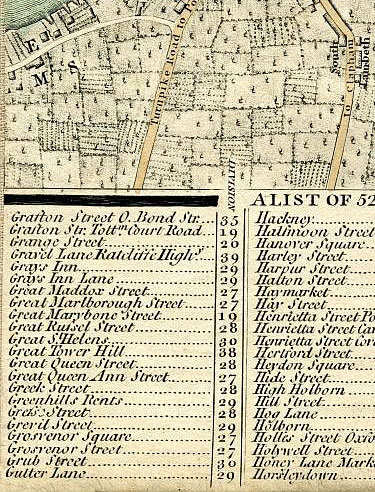 E
M S
Turnpike Road to
South
Lambeth
to Clapham
DIVISION
A LIST OF 52
Grafton Street O. Bond Str. 35
Grafton Str. Tottm. Court Road 19
Grange Street 20
Gravel Lane Ratcliffe Highy. 39
Grays Inn 29
Grays Inn Lane 29
Great Maddox Street 27
Great Marlborough Street 27
Great Marybone Street 19
Great Russel Street 28
Great S. Helens 30
Great Tower Hill 38
Great Queen Street 28
Great Queen Ann Street 27
Greek Street 28
Greenhills Rents 29
Street 28
Grevil Street 29
Grosvenor Square 27
Grosvenor Street 27
Grub Street 30
Gutter Lane 29
Hackney
Halfmoon Street
Hanover Square
Harley Street
Harpur Street
Hatton Street
Haymarket
Hay Street
Henrietta Street Po
Henrietta Street Cav
Henrietta Street Cov
Hertford Street
Heydon Square
Hide Street
High Holborn
Hill Street
Hog Lane
Holborn
Holles Street Oxfo
Holywell Street
Honey Lane Mark
Horsleydown